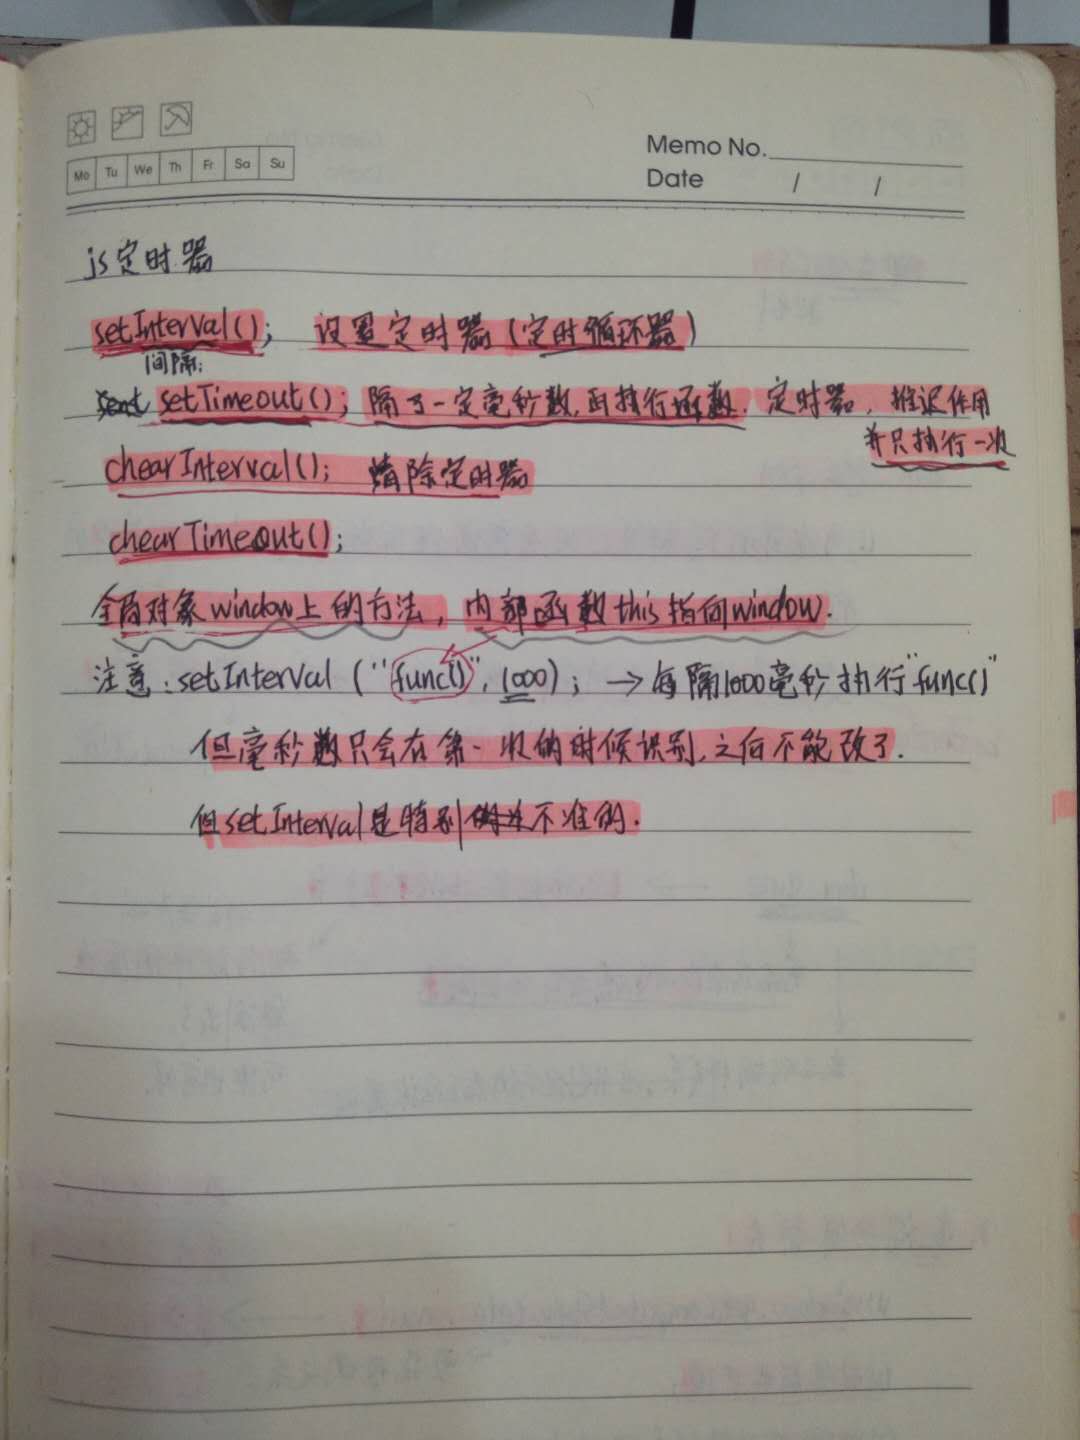 Mo Tu We Th Fr Sa Su
Memo No.
Date / /
js定时器
setInterval(); 设置定时器(定时循环器)
间隔;
setTimeout(); 隔了一定毫秒数,再执行函数. 定时器, 推迟作用
并只执行一次
chearInterval(); 清除定时器
chearTimeout();
全局对象window上的方法, 内部函数this指向window.
注意:setInterval ("func()", 1000); → 每隔1000毫秒执行"func()"
但毫秒数只会在第一次的时候识别,之后不能改了.
但setInterval是特别不准的.